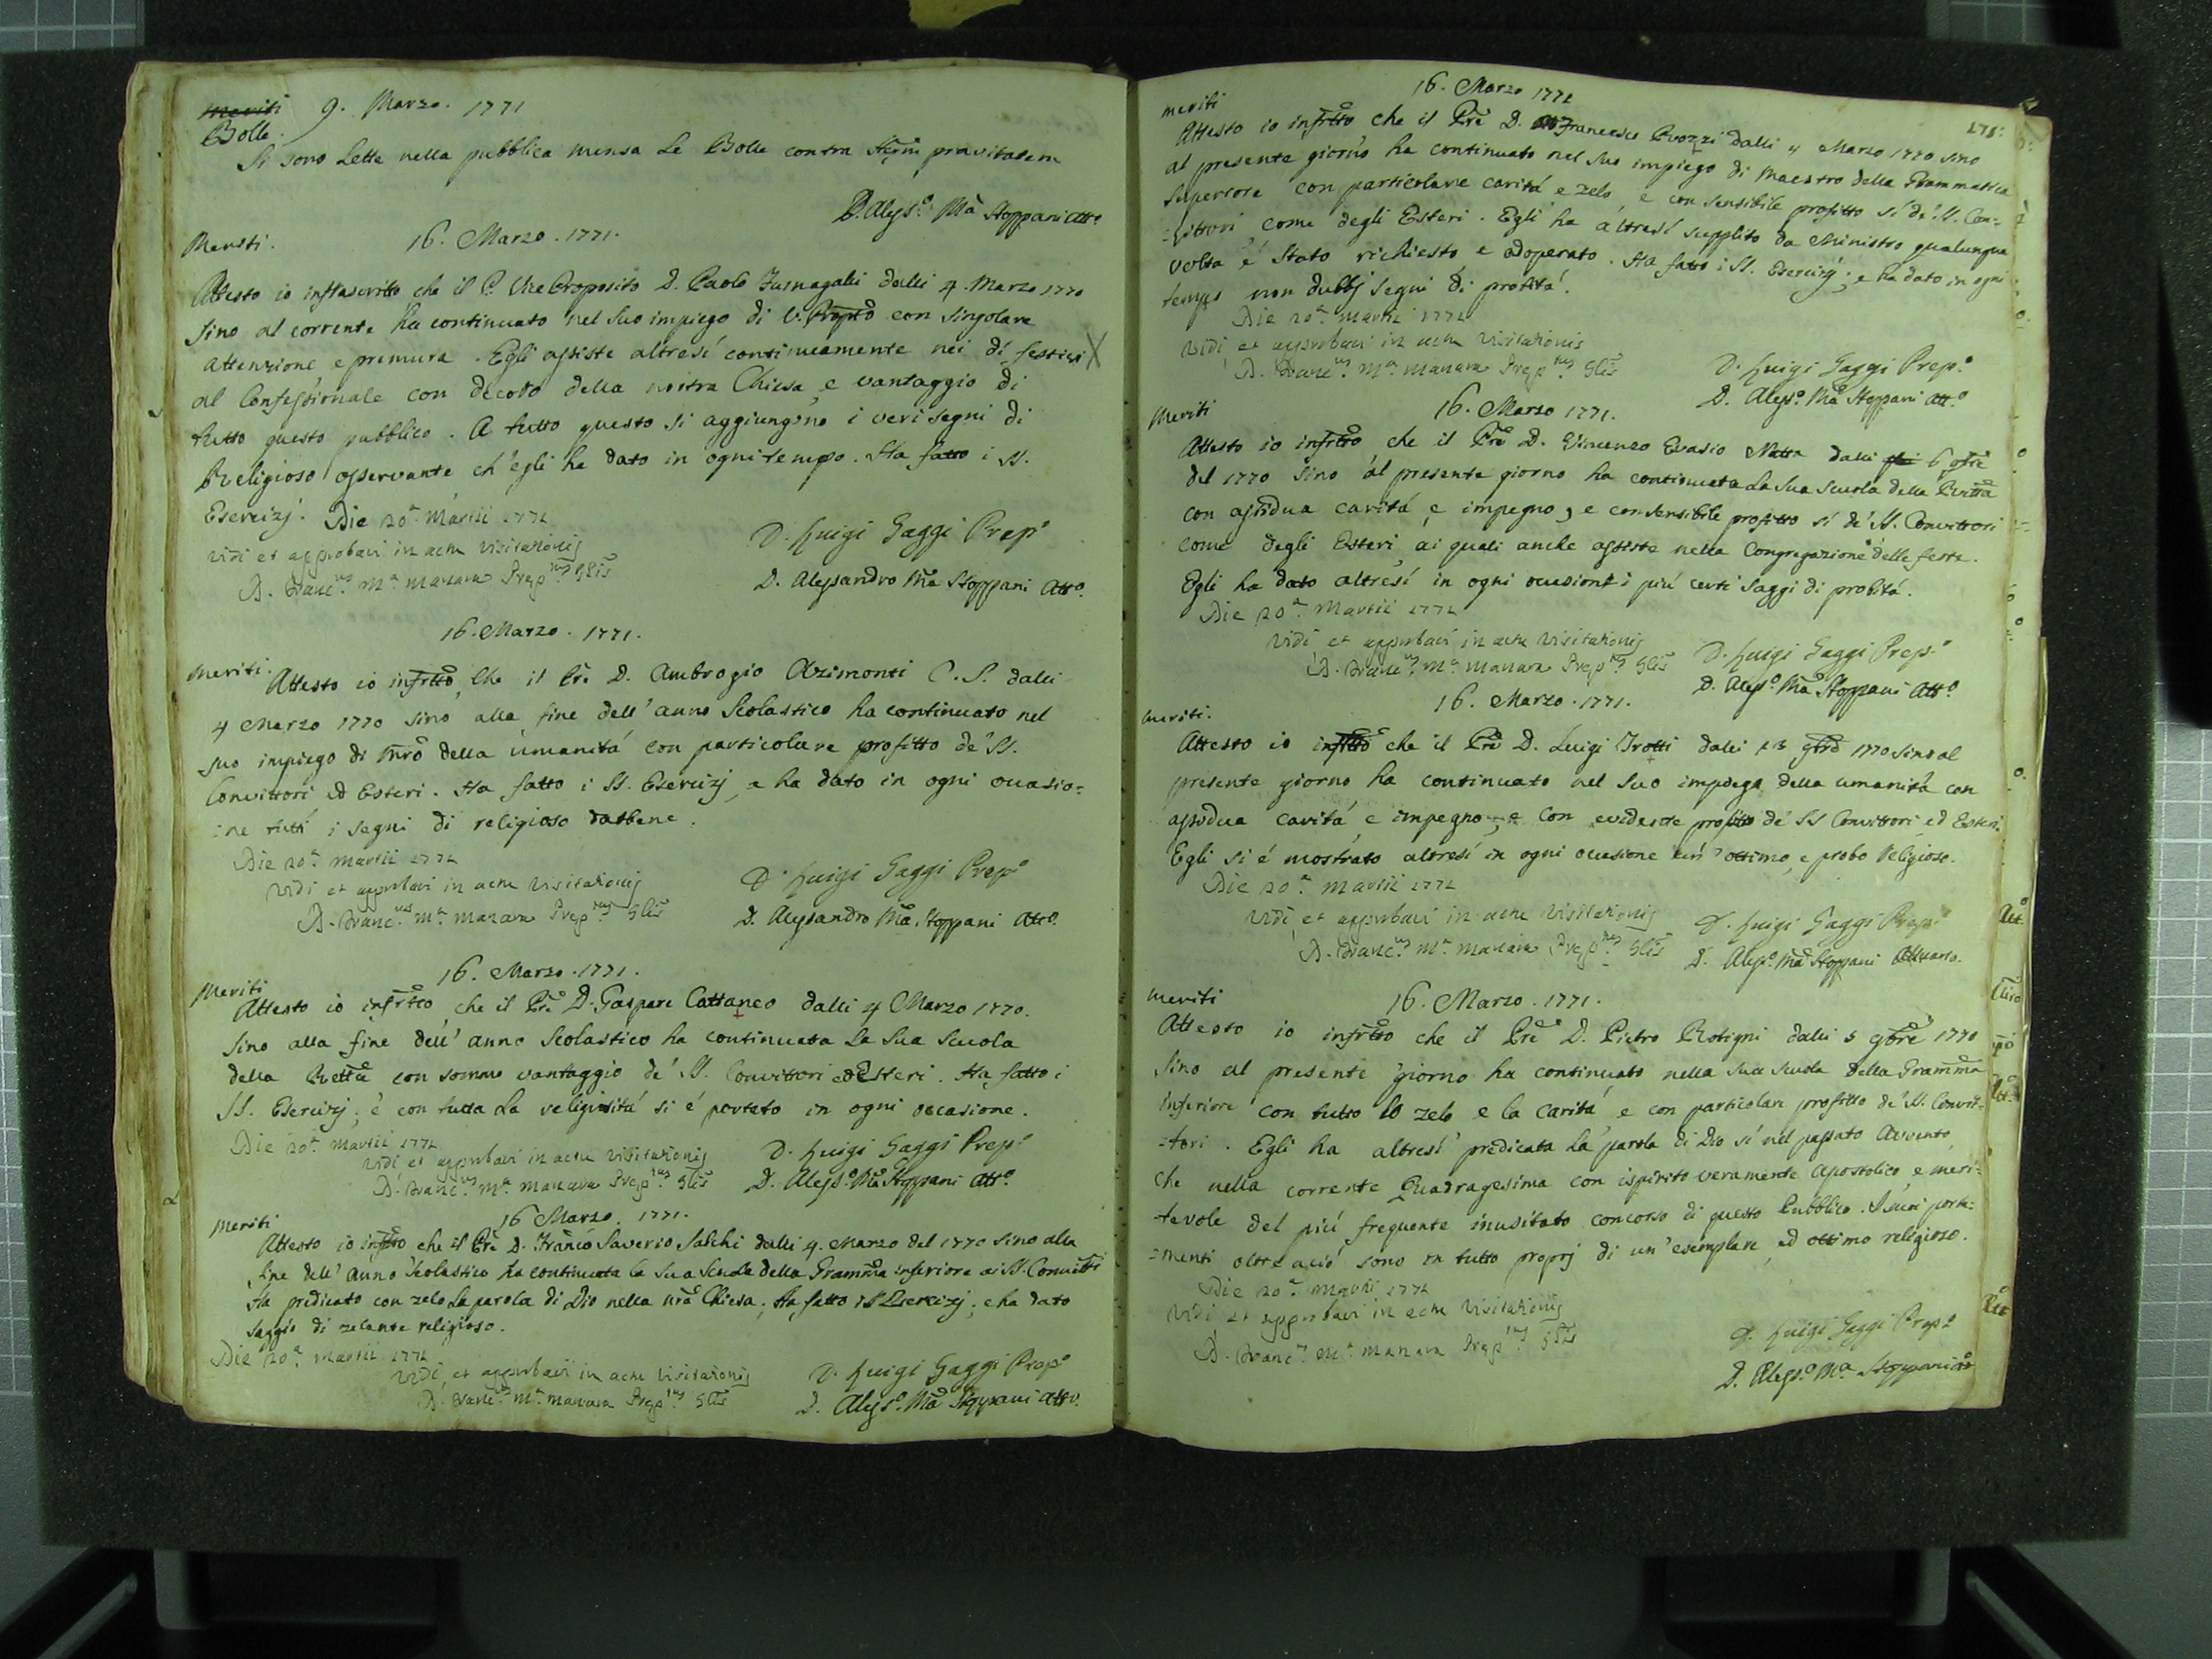 meriti 9. Marzo. 1771
Bolle.
Si sono Lette nella pubblica mensa Le Bolle contra pravitatem
D. Aless.o Ma Stoppani Att.o
Meriti. 16. Marzo. 1771.
Attesto io infrascritto che il P. Vice Proposito D. Paolo Fumagalli dalli 4. Marzo 1770
sino al corrente ha continuato nel suo impiego di V. Proptõ con singolare
attenzione e premura. Egli assiste altresí continuamente nei dí festivi X
al Confessionale con decoro della nostra Chiesa, e vantaggio di
tutto questo pubblico. A tutto questo si aggiungono i veri segni di
Religioso osservante ch'egli ha dato in ogni tempo. Ha fatto i SS.
Esercizj. Die 20.a Martii 1772
vidi et approbavi in actu visitationis
D. Franc.us M.a Manara Prep.tus Glis
D. Luigi Gaggi Prep.o
D. Alessandro Ma Stoppani Att.o
16. Marzo. 1771.
meriti. Attesto io infrtto, che il Pre D. Ambrogio Azimonti C. S. dalli
4 Marzo 1770 sino alla fine dell'anno Scolastico ha continuato nel
suo impiego di Mrõ della umanitá con particolare profitto de' SS.
Convittori ed Esteri. Ha fatto i SS. Esercizj, e ha dato in ogni ocasio=
:ne tutti i segni di religioso dabbene.
Die 20.a Martii 1772
vidi et approbavi in actu visitationis
D. Franc.us M.a Manara Prep.tus Glis
D. Luigi Gaggi Prep.o
D. Alessandro Ma Stoppani Att.o
16. Marzo. 1771.
Meriti
Attesto io infrtto, che il Pre D. Gaspare Cattaneo dalli 4 Marzo 1770.
sino alla fine dell'anno Scolastico ha continuata La Sua Scuola
della Rettca con sommo vantaggio de' SS. Convittori ed Esteri. Ha fatto i
SS. Esercizj; e con tutta La religiositá si é portato in ogni occasione.
Die 20.a Martii 1772
vidi et approbavi in actu visitationis
D. Franc.us M.a Manara Prep.tus Glis
D. Luigi Gaggi Prep.o
D. Aless.o Ma Stoppani Att.o
Meriti 16 Marzo. 1771.
Attesto io infrtto che il Pre D. Franco Saverio Salchi dalli 4. Marzo del 1770 sino alla
fine dell'anno Scolastico ha continuata la sua Scuola della Gramma inferiore ai SS. Convitti
Ha predicato con zelo La parola di Dio nella nra Chiesa; Ha fatto i SS Esercizj; e ha dato
saggio di zelante religioso.
Die 20.a Martii 1772
vidi, et approbavi in actu visitationis
D. Franc.us M.a Manara Prep.tus Glis
D. Luigi Gaggi Prep.o
D. Aless.o Ma Stoppani Att.o
16. Marzo 1771
271.
meriti
Attesto io infrtto che il Pre D. Francesco Pozzi dalli 4 Marzo 1770 sino
al presente giorno ha continuato nel suo impiego di Maestro della Grammatica
Superiore con particolare caritá e zelo, e con sensibile profitto sí de' SS. Con=
:vittori, come degli Esteri. Egli ha altresí supplito da Ministro qualunque
volta é stato richiesto e adoperato. Ha fatto i SS. Esercizj; e ha dato in ogni
tempo non dubbj segni di probitá.
Die 20.a Martii 1772
vidi, et approbavi in actu visitationis
D. Franc.us M.a Manara Prep.tus Glis
D. Luigi Gaggi Prep.o
D. Aless.o Ma Stoppani Att.o
Meriti 16. Marzo 1771.
Attesto io infrtto che il Pre D. Vincenzo Evasio Natta dalli 6 
del 1770 sino al presente giorno ha continuata La Sua Scuola della Rettca
con assidua caritá, e impegno, e con sensibile profitto sí de' SS. Convittori
come degli Esteri, ai quali anche assiste nella Congregazione delle feste.
Egli ha dato altresí in ogni ocasione i piú certi saggi di probitá.
Die 20.a Martii 1772
vidi, et approbavi in actu visitationis
D. Franc.us M.a Manara Prep.tus Glis
D. Luigi Gaggi Prep.o
D. Aless.o Ma Stoppani Att.o
16. Marzo. 1771.
meriti.
Attesto io infrtto che il Pre D. Luigi Trotti dalli 13 9bre 1770 sino al
presente giorno ha continuato nel suo impiego della umanitá con
assidua caritá, e impegno, e con evidente profitto de' SS Convittori, ed Esteri.
Egli si é mostrato altresí in ogni ocasione un ottimo, e probo Religioso.
Die 20.a Martii 1772
vidi, et approbavi in actu visitationis
D. Franc.us M.a Manara Prep.tus Glis
D. Luigi Gaggi Prep.o
D. Aless.o Ma Stoppani Attuaro.
meriti 16. Marzo. 1771.
Attesto io infrtto che il Pre D. Pietro Rotigni dalli 5 9bre 1770
sino al presente giorno ha continuato nella sua scuola della Gramma
inferiore con tutto lo zelo e la caritá e con particolare profitto de' SS. Convit=
:tori. Egli ha altresí predicata La parola di Dio sí nel passato Avvento,
che nella corrente Quadragesima con ispirito veramente Apostolico, e meri=
tevole del piú frequente inusitato concorso di questo Pubblico. I suoi porta=
:menti oltre a ció sono in tutto proprj di un'esemplare, ed ottimo religioso.
Die 20.a Martii 1772
vidi et approbavi in actu visitationis
D. Franc.us M.a Manara Prep.tus Glis
D. Luigi Gaggi Prep.o
D. Aless.o Ma Stoppani